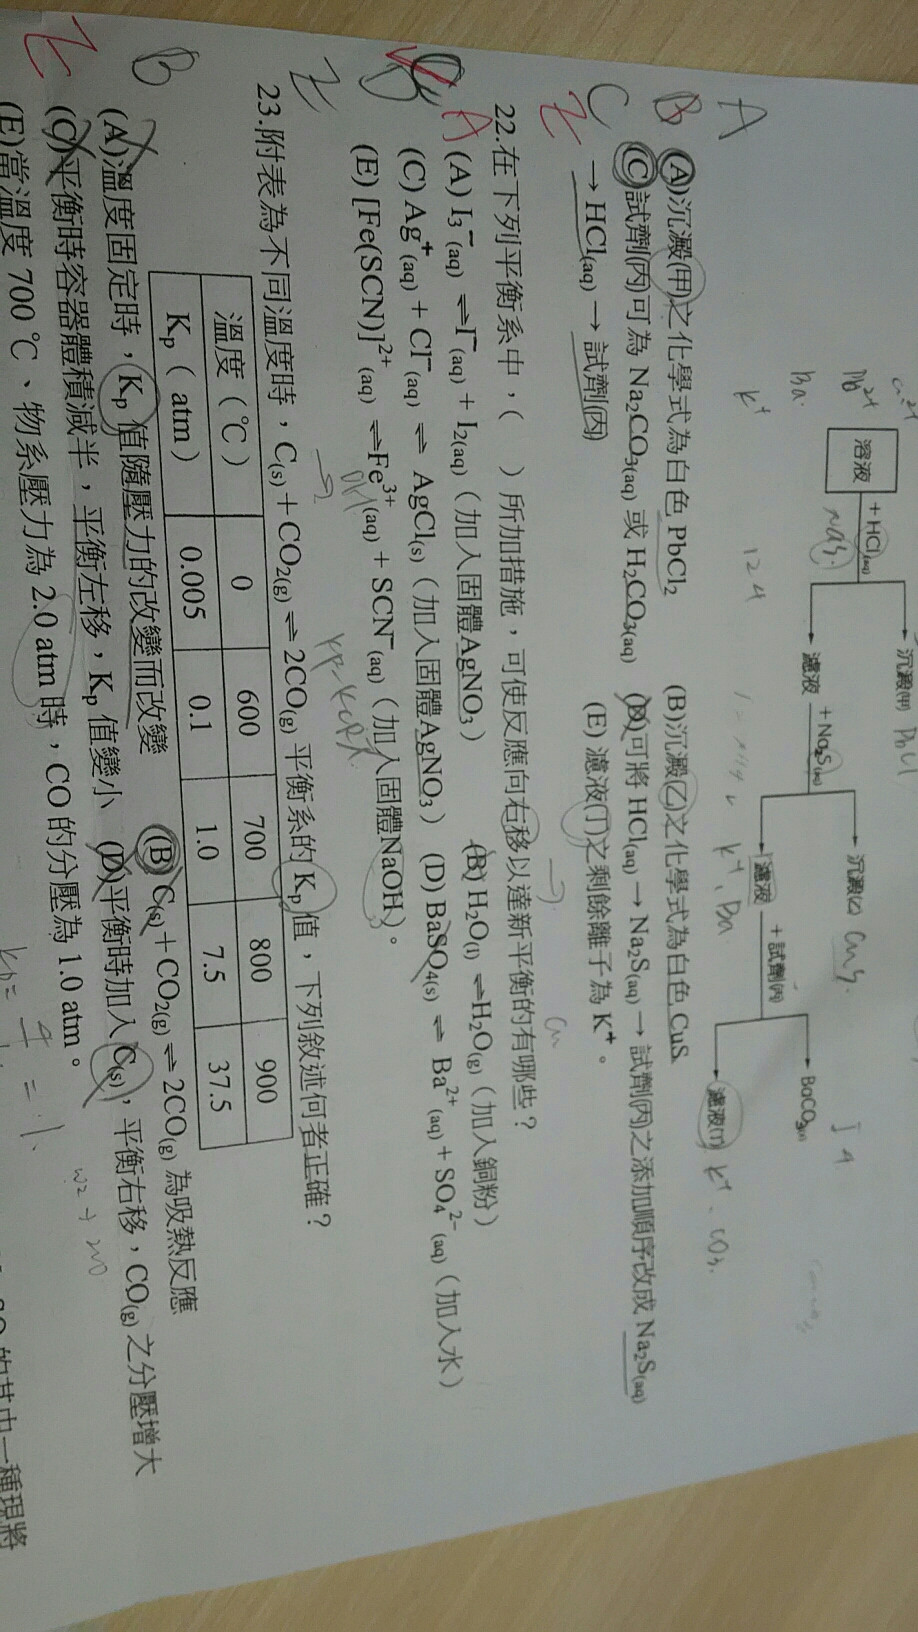 Cu²⁺
Pb²⁺
Ba
K⁺
溶液
+HCl(aq)
Na₂S
沉澱(甲) PbCl
濾液
+Na₂S(aq)
沉澱(乙) CuS.
濾液 K⁺、Ba
+試劑(丙)
BaCO₃(s)
濾液(丁) K⁺、CO₃.
124
A
B
C
(A)沉澱(甲)之化學式為白色 PbCl₂ (B)沉澱(乙)之化學式為白色 CuS
(C)試劑(丙)可為 Na₂CO₃(aq) 或 H₂CO₃(aq) (D)可將 HCl(aq) → Na₂S(aq) → 試劑(丙)之添加順序改成 Na₂S(aq)
→ HCl(aq) → 試劑(丙) (E) 濾液(丁)之剩餘離子為 K⁺。
22.在下列平衡系中，( )所加措施，可使反應向右移以達新平衡的有哪些？
A
(A) I₃⁻(aq) ⇌ I⁻(aq) + I₂(aq)（加入固體AgNO₃） (B) H₂O(l) ⇌ H₂O(g)（加入銅粉）
(C) Ag⁺(aq) + Cl⁻(aq) ⇌ AgCl(s)（加入固體AgNO₃） (D) BaSO₄(s) ⇌ Ba²⁺(aq) + SO₄²⁻(aq)（加入水）
(E) [Fe(SCN)]²⁺(aq) ⇌ Fe³⁺(aq) + SCN⁻(aq)（加入固體NaOH）。
23.附表為不同溫度時，C(s) + CO₂(g) ⇌ 2CO(g) 平衡系的 Kp 值，下列敘述何者正確？
溫度（℃） 0 600 700 800 900
Kp（atm） 0.005 0.1 1.0 7.5 37.5
B
(A)溫度固定時，Kp 值隨壓力的改變而改變 (B) C(s) + CO₂(g) ⇌ 2CO(g) 為吸熱反應
(C)平衡時容器體積減半，平衡左移，Kp 值變小 (D)平衡時加入 C(s)，平衡右移，CO(g) 之分壓增大
(E)當溫度 700 ℃、物系壓力為 2.0 atm 時，CO 的分壓為 1.0 atm。
的其中一種現將